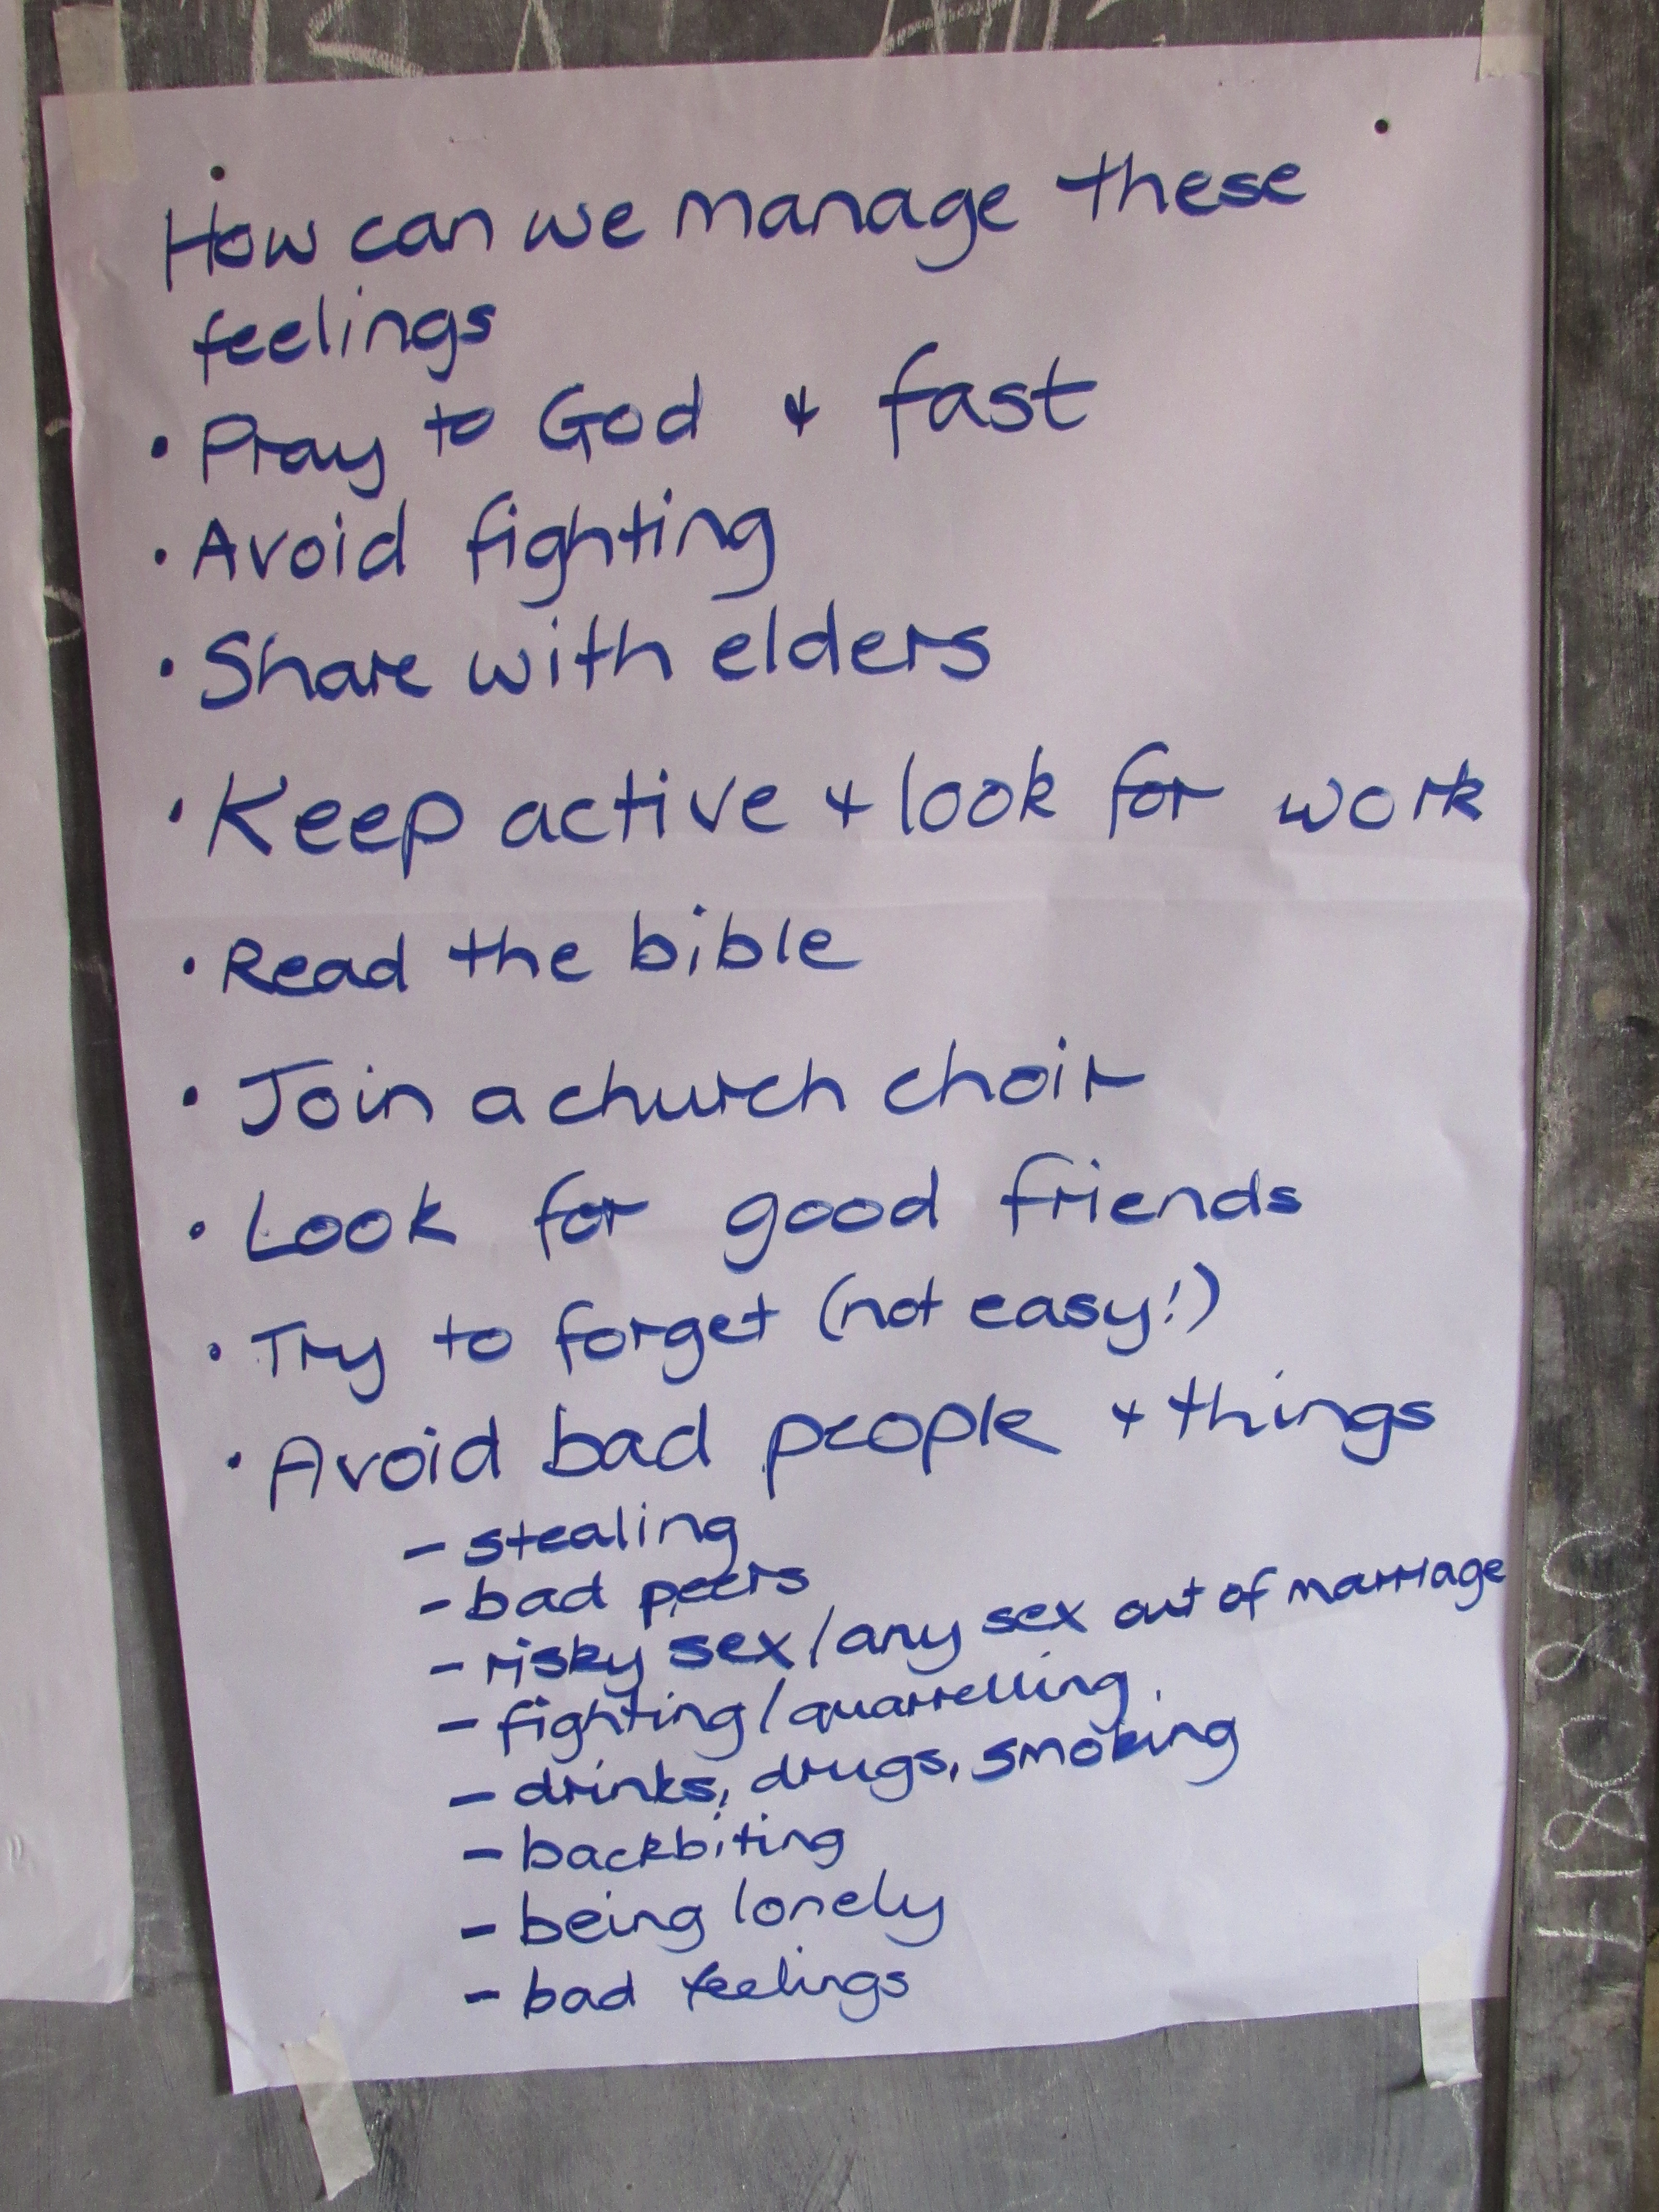 How can we manage these
feelings
• Pray to God & fast
• Avoid fighting
• Share with elders
• Keep active & look for work
• Read the bible
• Join a church choir
• Look for good friends
• Try to forget (not easy!)
• Avoid bad people & things
- stealing
- bad peers
- risky sex/any sex out of marriage
- fighting/quarrelling
- drinks, drugs, smoking
- backbiting
- being lonely
- bad feelings